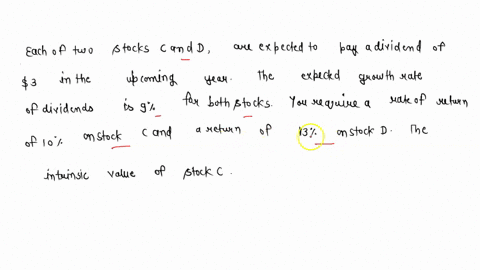 Each of two stocks C and D, are expected to pay a dividend of
$3 in the upcoming year. The expected growth rate
of dividends is 9% for both stocks. You require a rate of return
of 10% on stock C and a return of 13% on stock D. The
intrinsic value of stock C.